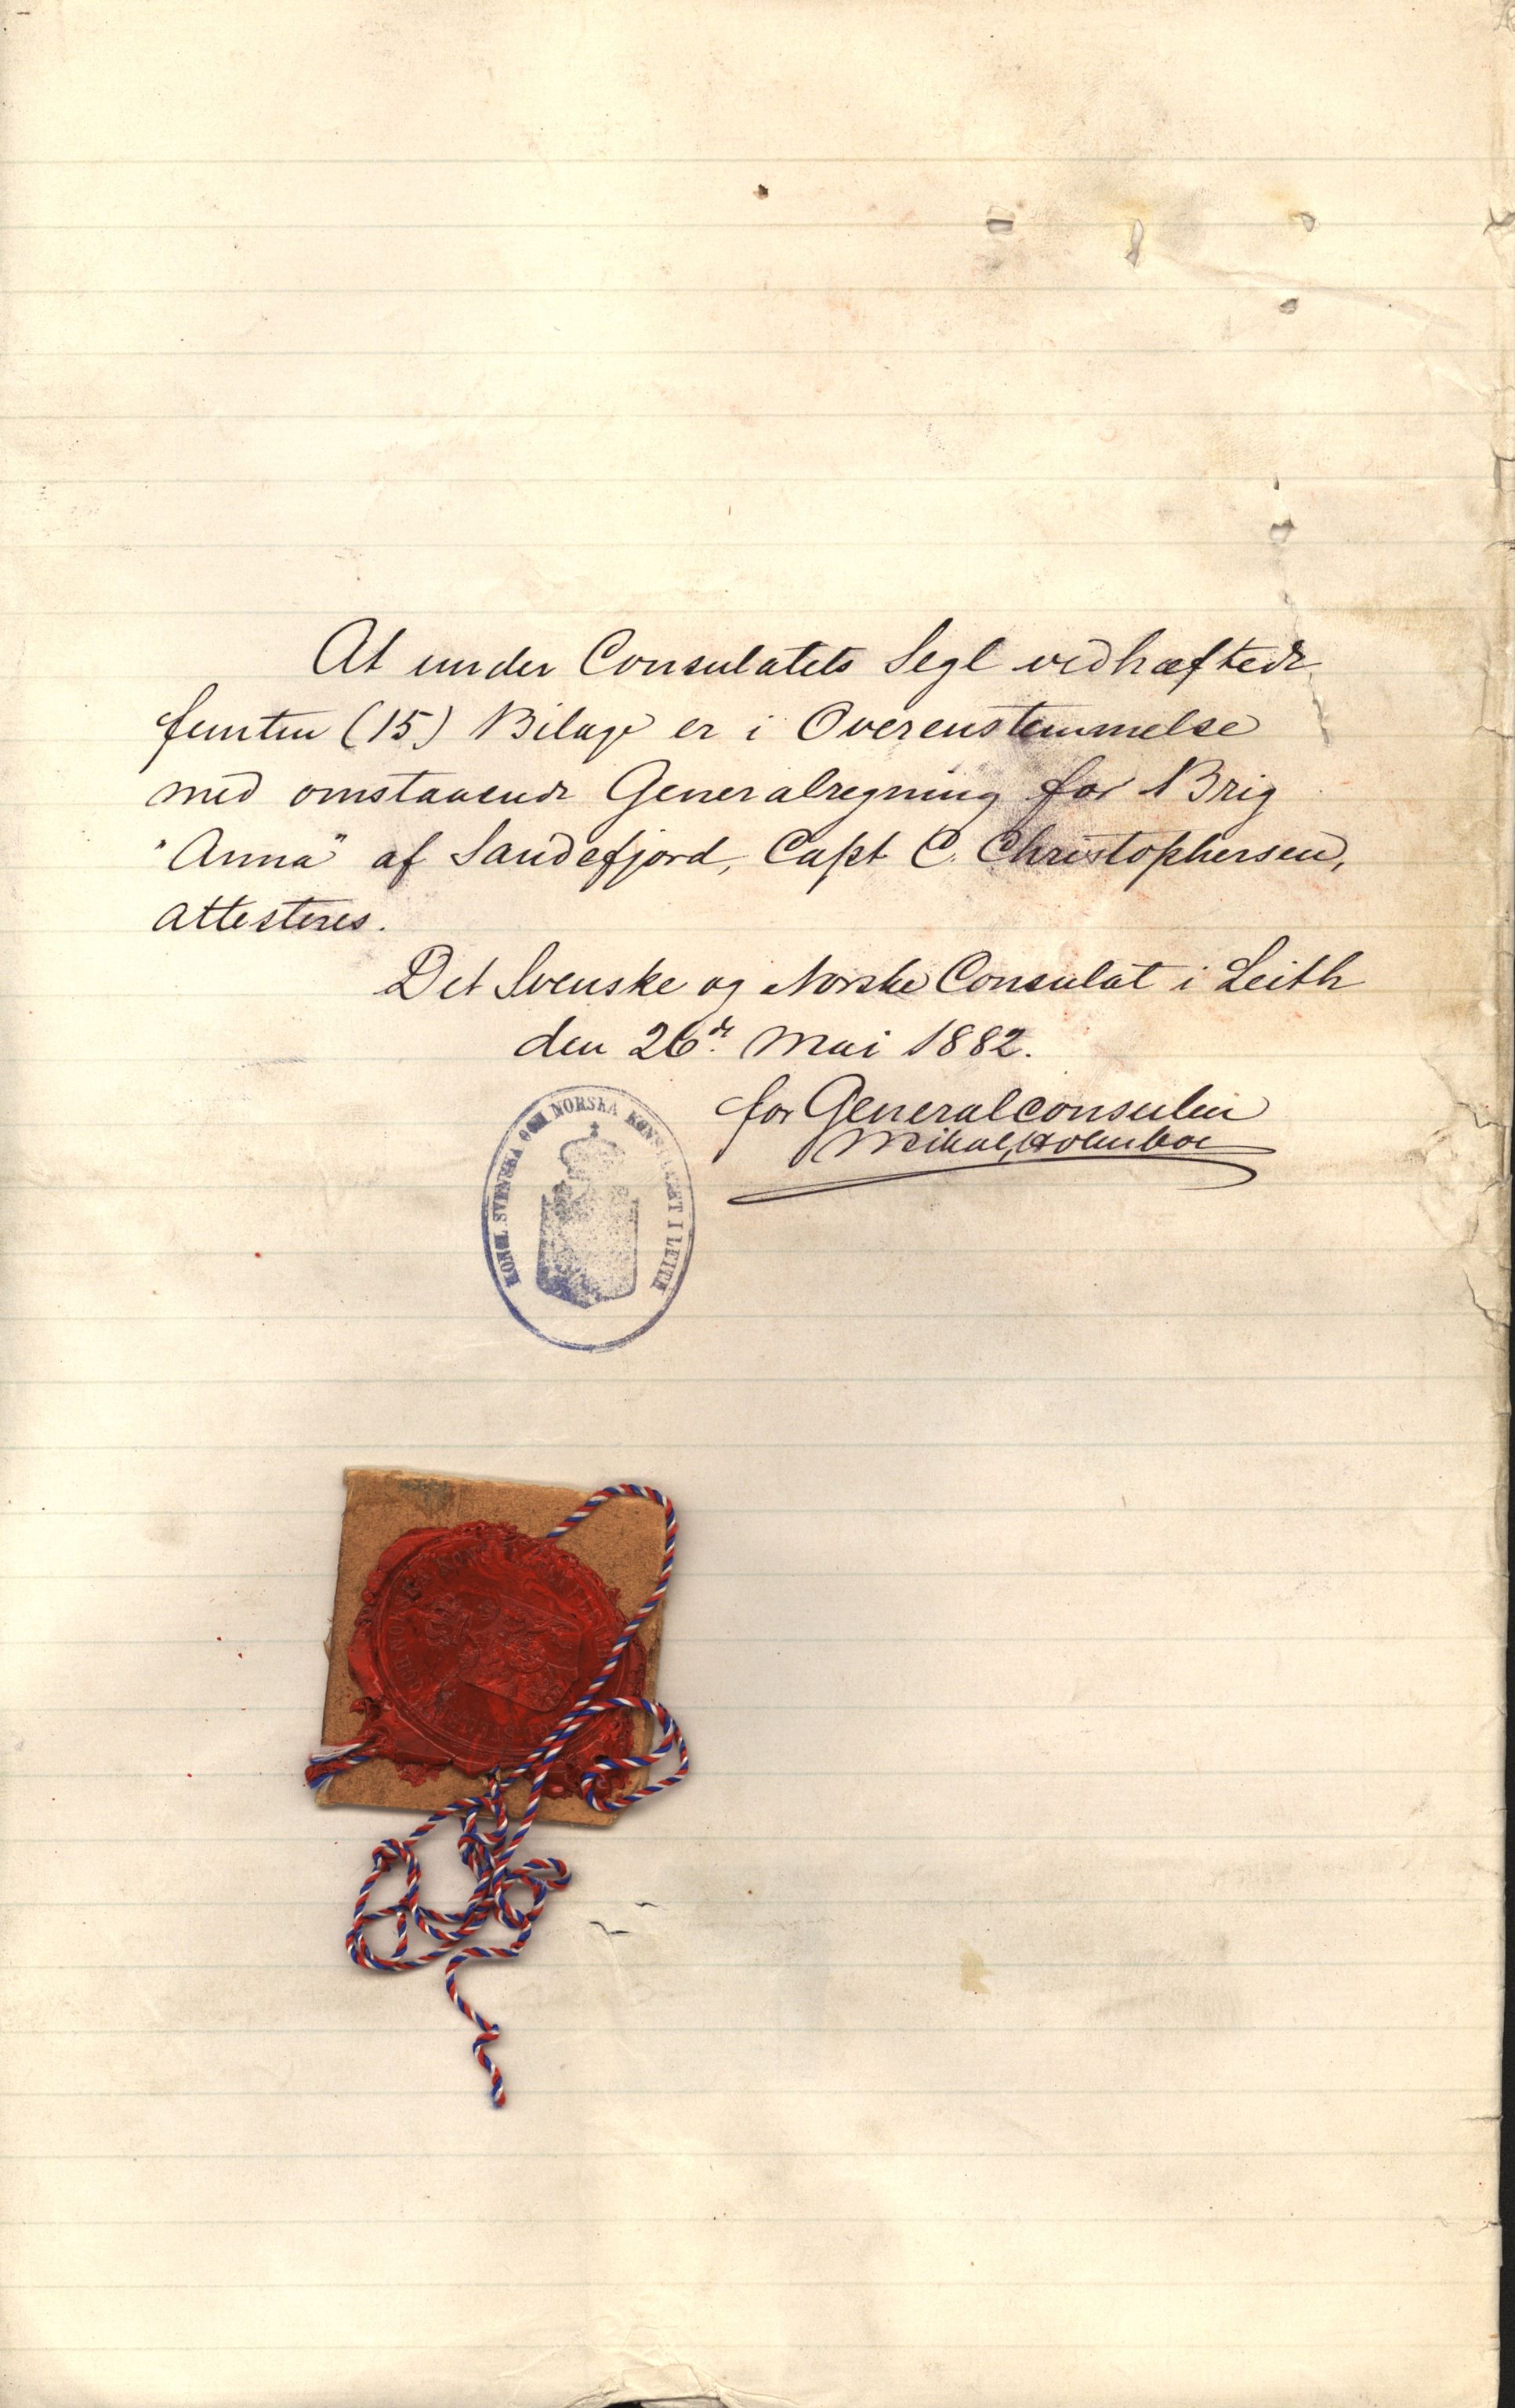 At under Consulatets Segl vedhæftede
femten (15) Bilage er i Overensstemmelse
med omstaaende Generalregning for Brig
"Anna" af Sandefjord, Capt C. Christophersen,
attesteres.
Det Svenske og Norske Consulat i Leith
den 26de Mai 1882.
for Generalconsulen
Mikal Holmboe
KONGL. SVENSKA OCH NORSKA KONSULATET I LEITH